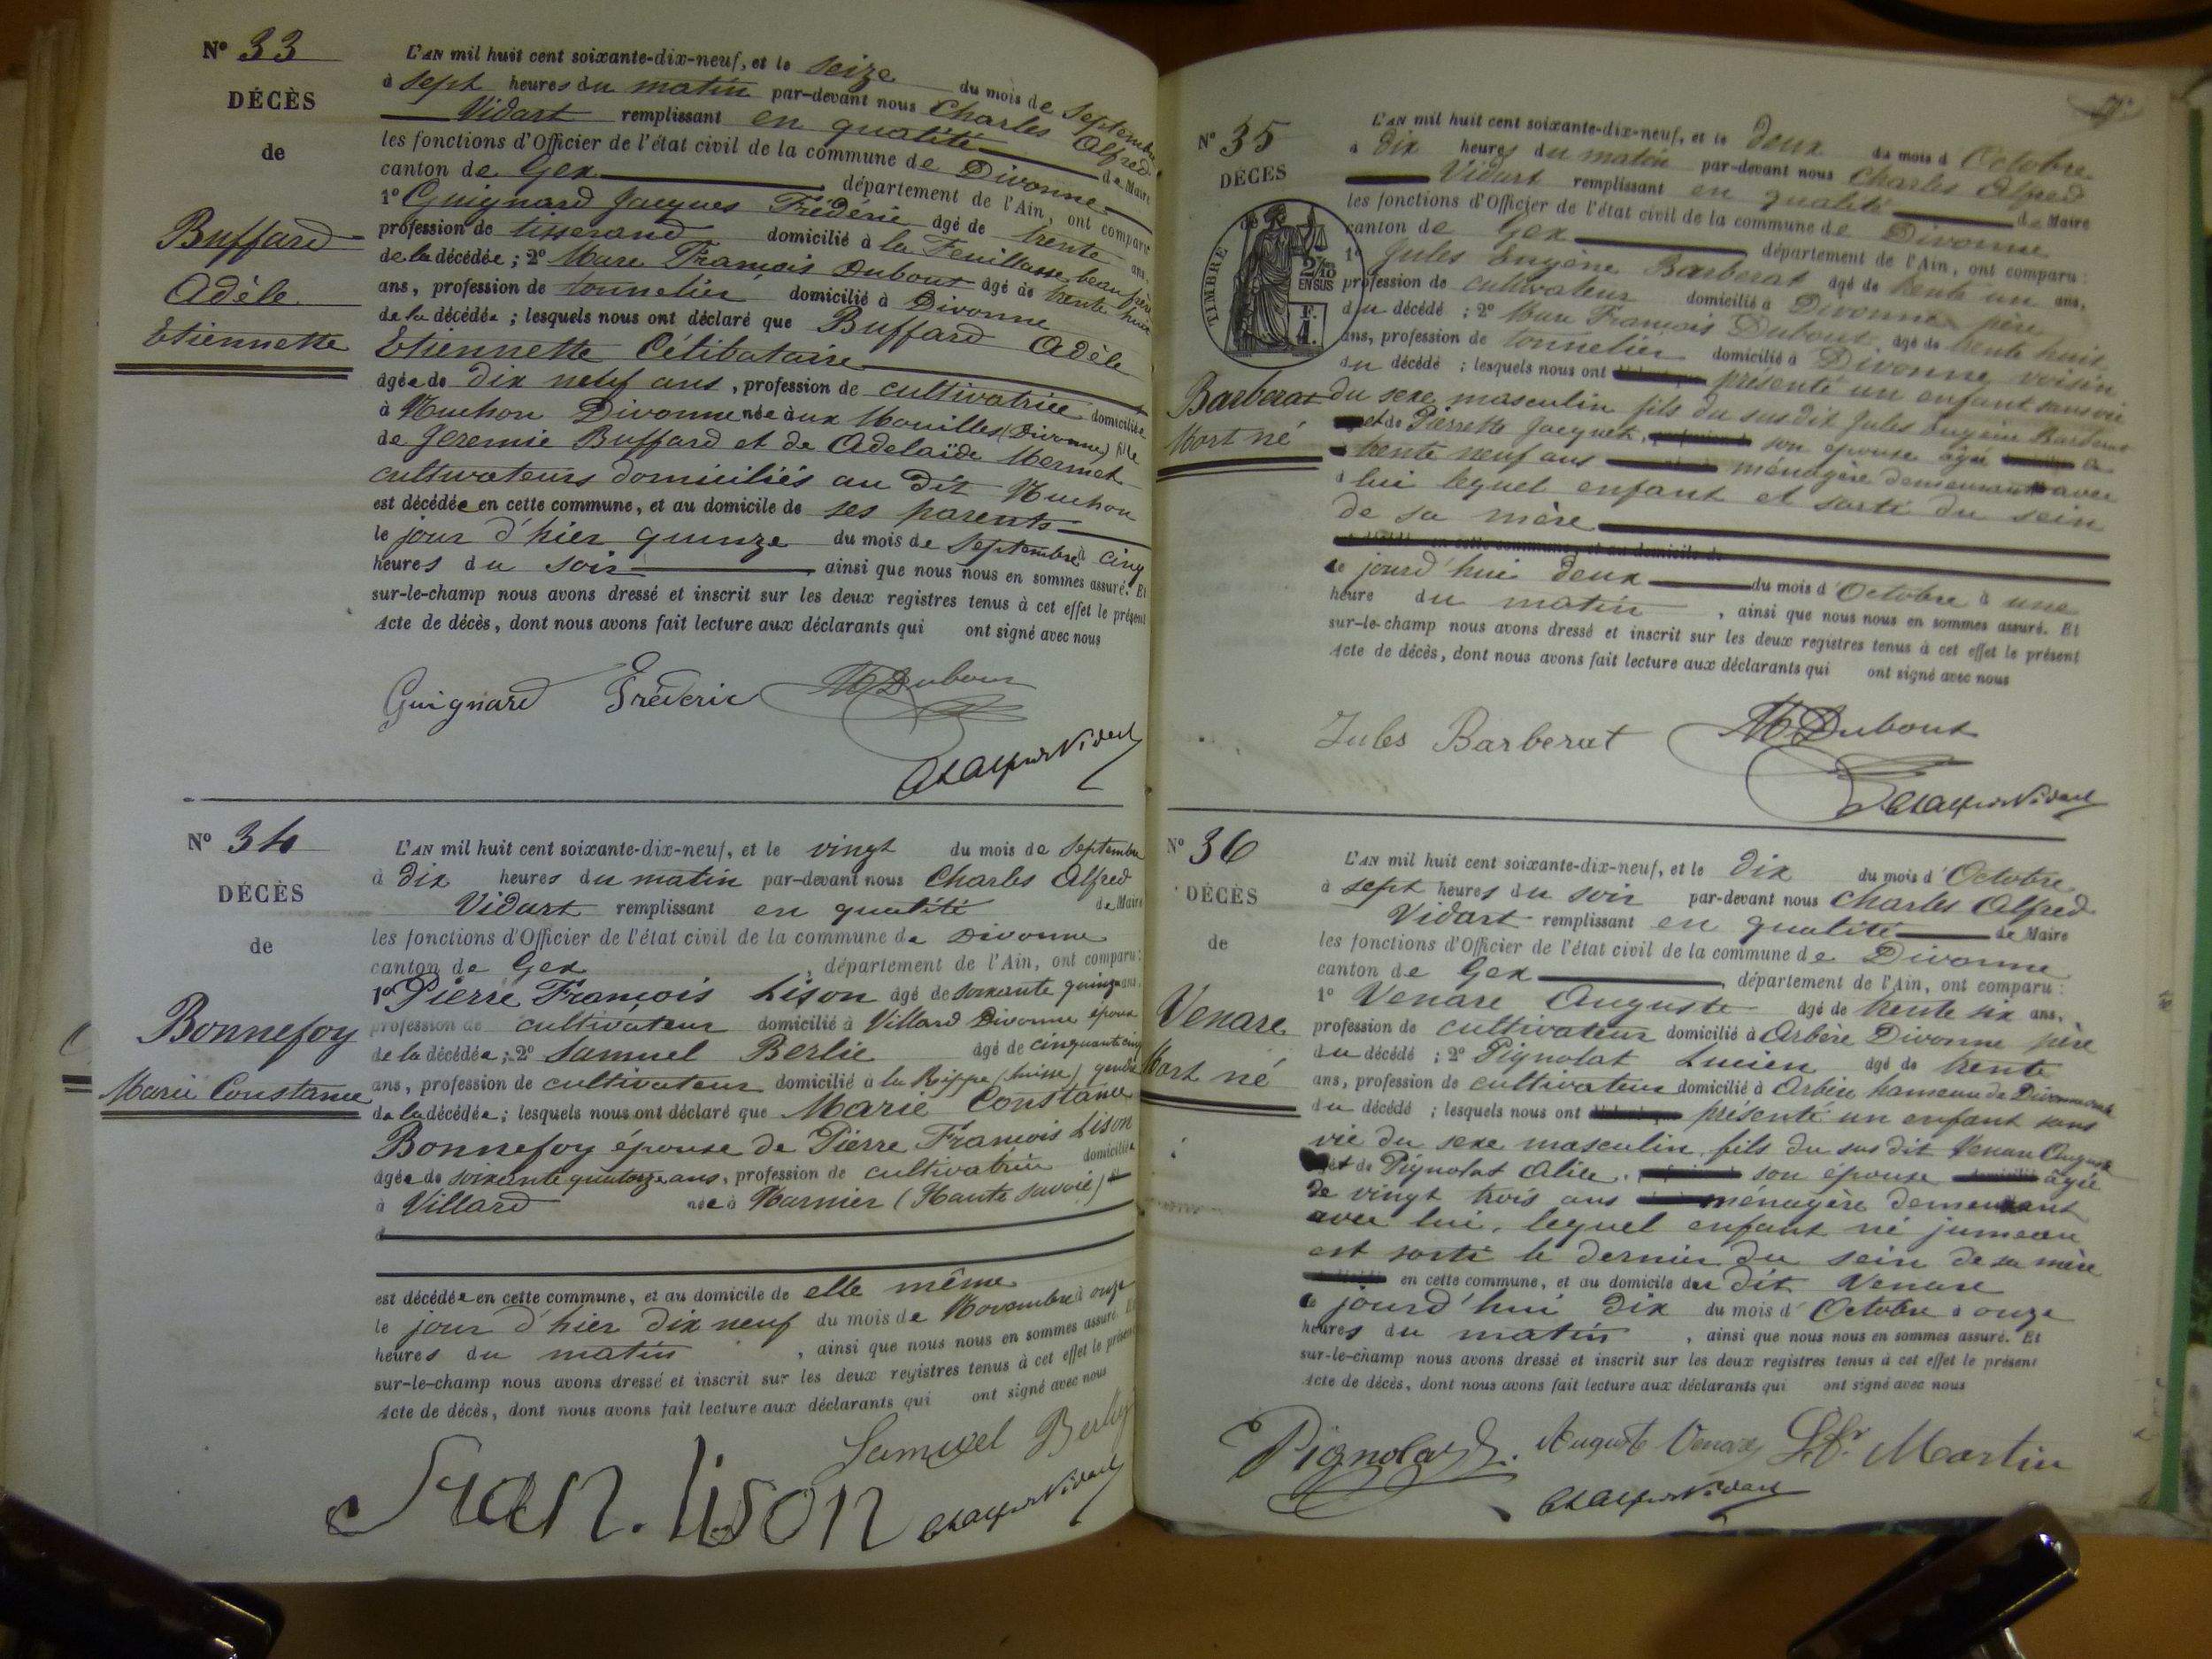 N° 33
DÉCÈS
de
Buffard
Adèle
Etiennette
L'AN mil huit cent soixante-dix-neuf, et le seize du mois de Septembre
à sept heures du matin par-devant nous Charles Alfred
Vidart remplissant en qualité de Maire
les fonctions d'Officier de l'état civil de la commune de Divonne
canton de Gex département de l'Ain, ont comparu
1° Guignard Jacques Frédéric âgé de trente ans,
profession de tisserand domicilié à la Feuillasse beau frère
de la décédée ; 2° Marc François Dubout âgé de trente huit
ans, profession de tonnelier domicilié à Divonne
de la décédée ; lesquels nous ont déclaré que Buffard Adèle
Etiennette Célibataire
âgée de dix neuf ans, profession de cultivatrice domiciliée
à Vuchon Divonne née aux Mouilles (Divonne) fille
de Jeremie Buffard et de Adelaïde Mermet
cultivateurs domiciliés au dit Vuchon
est décédée en cette commune, et au domicile de ses parents
le jour d'hier quinze du mois de Septembre à cinq
heures du soir ainsi que nous nous en sommes assuré. Et
sur-le-champ nous avons dressé et inscrit sur les deux registres tenus à cet effet le présent
Acte de décès, dont nous avons fait lecture aux déclarants qui ont signé avec nous
Guignard Fréderic M Dubout
N° 34
DÉCÈS
de
Bonnefoy
Marie Constance
L'AN mil huit cent soixante-dix-neuf, et le vingt du mois de Septembre
à dix heures du matin par-devant nous Charles Alfred
Vidart remplissant en qualité de Maire
les fonctions d'Officier de l'état civil de la commune de Divonne
canton de Gex, département de l'Ain, ont comparu :
1° Pierre François Lison âgé de soixante quinze ans,
profession de cultivateur domicilié à Villard Divonne époux
de la décédée ; 2° Samuel Berlie âgé de cinquante cinq
ans, profession de cultivateur domicilié à la Rippe (Suisse) gendre
de la décédée ; lesquels nous ont déclaré que Marie Constance
Bonnefoy épouse de Pierre François Lison
âgée de soixante quatorze ans, profession de cultivatrice domiciliée
à Villard née à Marnier (Haute Savoie)
est décédée en cette commune, et au domicile de elle même
le jour d'hier dix neuf du mois de Novembre à onze
heures du matin, ainsi que nous nous en sommes assuré. Et
sur-le-champ nous avons dressé et inscrit sur les deux registres tenus à cet effet le présent
Acte de décès, dont nous avons fait lecture aux déclarants qui ont signé avec nous
Samuel Berly
fran. lison
N° 35
DÉCÈS
TIMBRE
2/10
EN SUS
F.
1.
Barberat
Mort né
L'AN mil huit cent soixante-dix-neuf, et le deux du mois d'Octobre
à dix heures du matin par-devant nous Charles Alfred
Vidart remplissant en qualité de Maire
les fonctions d'Officier de l'état civil de la commune de Divonne
canton de Gex département de l'Ain, ont comparu :
1° Jules Eugène Barberat âgé de trente un ans,
profession de cultivateur domicilié à Divonne père
du décédé ; 2° Marc François Dubout âgé de trente huit
ans, profession de tonnelier domicilié à Divonne voisin
du décédé ; lesquels nous ont présenté un enfant sans vie
du sexe masculin fils du susdit Jules Eugène Barberat
et de Pierrette Jacquet, son épouse âgée de
trente neuf ans ménagère demeurant avec
lui lequel enfant et sorti du sein
de sa mère
est décédé en cette commune, et au domicile de
le jourd'hui deux du mois d'Octobre à une
heure du matin, ainsi que nous nous en sommes assuré. Et
sur-le-champ nous avons dressé et inscrit sur les deux registres tenus à cet effet le présent
Acte de décès, dont nous avons fait lecture aux déclarants qui ont signé avec nous
Jules Barberat M Dubout
N° 36
DÉCÈS
de
Venare
Mort né
L'AN mil huit cent soixante-dix-neuf, et le dix du mois d'Octobre
à sept heures du soir par-devant nous Charles Alfred
Vidart remplissant en qualité de Maire
les fonctions d'Officier de l'état civil de la commune de Divonne
canton de Gex, département de l'Ain, ont comparu :
1° Venare Auguste âgé de trente six ans,
profession de cultivateur domicilié à Arbère Divonne père
du décédé ; 2° Pignolat Lucien âgé de trente
ans, profession de cultivateur domicilié à Arbère hameau de Divonne
du décédé ; lesquels nous ont présenté un enfant sans
vie du sexe masculin fils du susdit Venare Auguste
et de Pignolat Alice, son épouse âgée
de vingt trois ans ménagère demeurant
avec lui, lequel enfant né jumeau
est sorti le dernier du sein de sa mère
en cette commune, et au domicile du dit Venare
le jourd'hui dix du mois d'Octobre à onze
heures du matin, ainsi que nous nous en sommes assuré. Et
sur-le-champ nous avons dressé et inscrit sur les deux registres tenus à cet effet le présent
Acte de décès, dont nous avons fait lecture aux déclarants qui ont signé avec nous
Pignolat Auguste Venare Martin